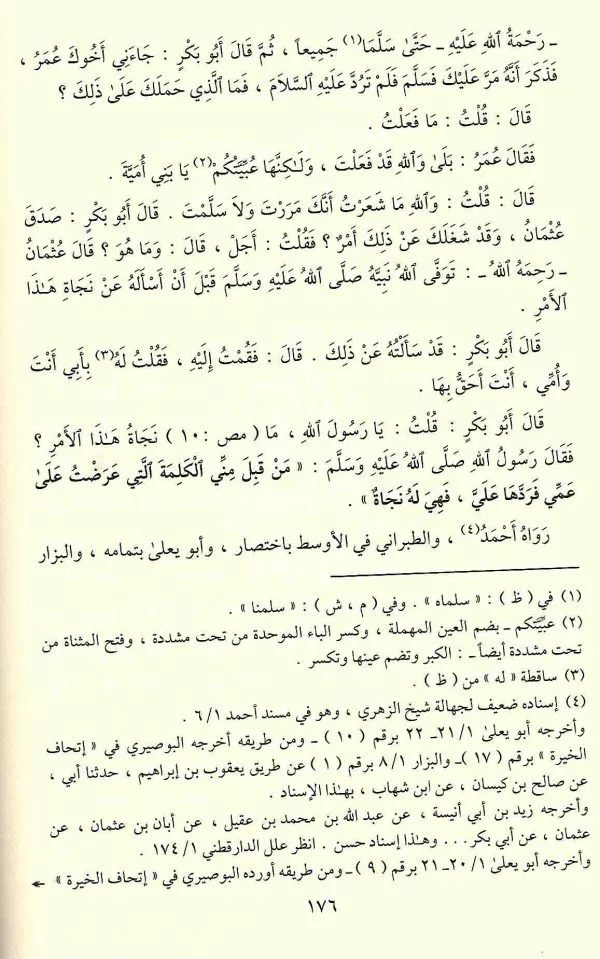 ـ رَحْمَةُ ٱللهِ عَلَيْهِ ـ حَتَّىٰ سَلَّمَا(١) جَمِيعاً ، ثُمَّ قَالَ أَبُو بَكْرٍ : جَاءَنِي أَخُوكَ عُمَرُ ،
فَذَكَرَ أَنَّهُ مَرَّ عَلَيْكَ فَسَلَّمَ فَلَمْ تَرُدَّ عَلَيْهِ ٱلسَّلاَمَ ، فَمَا ٱلَّذِي حَمَلَكَ عَلَىٰ ذَلِكَ ؟
قَالَ : قُلْتُ : مَا فَعَلْتُ .
فَقَالَ عُمَرُ : بَلَىٰ وَٱللهِ قَدْ فَعَلْتَ ، وَلَـٰكِنَّهَا عُبِّيَّتُكُمْ(٢) يَا بَنِي أُمَيَّةَ .
قَالَ : قُلْتُ : وَٱللهِ مَا شَعَرْتُ أَنَّكَ مَرَرْتَ وَلاَ سَلَّمْتَ . قَالَ أَبُو بَكْرٍ : صَدَقَ
عُثْمَانُ ، وَقَدْ شَغَلَكَ عَنْ ذَلِكَ أَمْرٌ ؟ فَقُلْتُ : أَجَلْ ، قَالَ : وَمَا هُوَ ؟ قَالَ عُثْمَانُ
ـ رَحِمَهُ ٱللهُ ـ : تَوَفَّى ٱللهُ نَبِيَّهُ صَلَّى ٱللهُ عَلَيْهِ وَسَلَّمَ قَبْلَ أَنْ أَسْأَلَهُ عَنْ نَجَاةِ هَـٰذَا
ٱلأَمْرِ .
قَالَ أَبُو بَكْرٍ : قَدْ سَأَلْتُهُ عَنْ ذَلِكَ . قَالَ : فَقُمْتُ إِلَيْهِ ، فَقُلْتُ لَهُ(٣) بِأَبِي أَنْتَ
وَأُمِّي ، أَنْتَ أَحَقُّ بِهَا .
قَالَ أَبُو بَكْرٍ : قُلْتُ : يَا رَسُولَ ٱللهِ ، مَا ( مص : ١٠ ) نَجَاةُ هَـٰذَا ٱلأَمْرِ ؟
فَقَالَ رَسُولُ ٱللهِ صَلَّى ٱللهُ عَلَيْهِ وَسَلَّمَ : « مَنْ قَبِلَ مِنِّي ٱلْكَلِمَةَ ٱلَّتِي عَرَضْتُ عَلَىٰ
عَمِّي فَرَدَّهَا عَلَيَّ ، فَهِيَ لَهُ نَجَاةٌ » .
رَوَاهُ أَحْمَدُ(٤) ، والطبراني في الأوسط باختصار ، وأبو يعلىٰ بتمامه ، والبزار
(١) في ( ظ ) : « سلماه » . وفي ( م ، ش ) : « سلمنا » .
(٢) عبِّيَّتكم ـ بضم العين المهملة ، وكسر الباء الموحدة من تحت مشددة ، وفتح المثناة من
تحت مشددة أيضاً ـ : الكبر وتضم عينها وتكسر .
(٣) ساقطة « له » من ( ظ ) .
(٤) إسناده ضعيف لجهالة شيخ الزهري ، وهو في مسند أحمد ١/ ٦ .
وأخرجه أبو يعلىٰ ١/ ٢١ـ ٢٢ برقم ( ١٠ ) ـ ومن طريقه أخرجه البوصيري في « إتحاف
الخيرة » برقم ( ١٧ ) ـ والبزار ١/ ٨ برقم ( ١ ) عن طريق يعقوب بن إبراهيم ، حدثنا أبي ،
عن صالح بن كيسان ، عن ابن شهاب ، بهـٰذا الإسناد .
وأخرجه زيد بن أبي أنيسة ، عن عبد الله بن محمد بن عقيل ، عن أبان بن عثمان ، عن
عثمان ، عن أبي بكر... وهـٰذا إسناد حسن . انظر علل الدارقطني ١/ ١٧٤ .
وأخرجه أبو يعلىٰ ١/ ٢٠ـ ٢١ برقم ( ٩ ) ـ ومن طريقه أورده البوصيري في « إتحاف الخيرة » ←
١٧٦